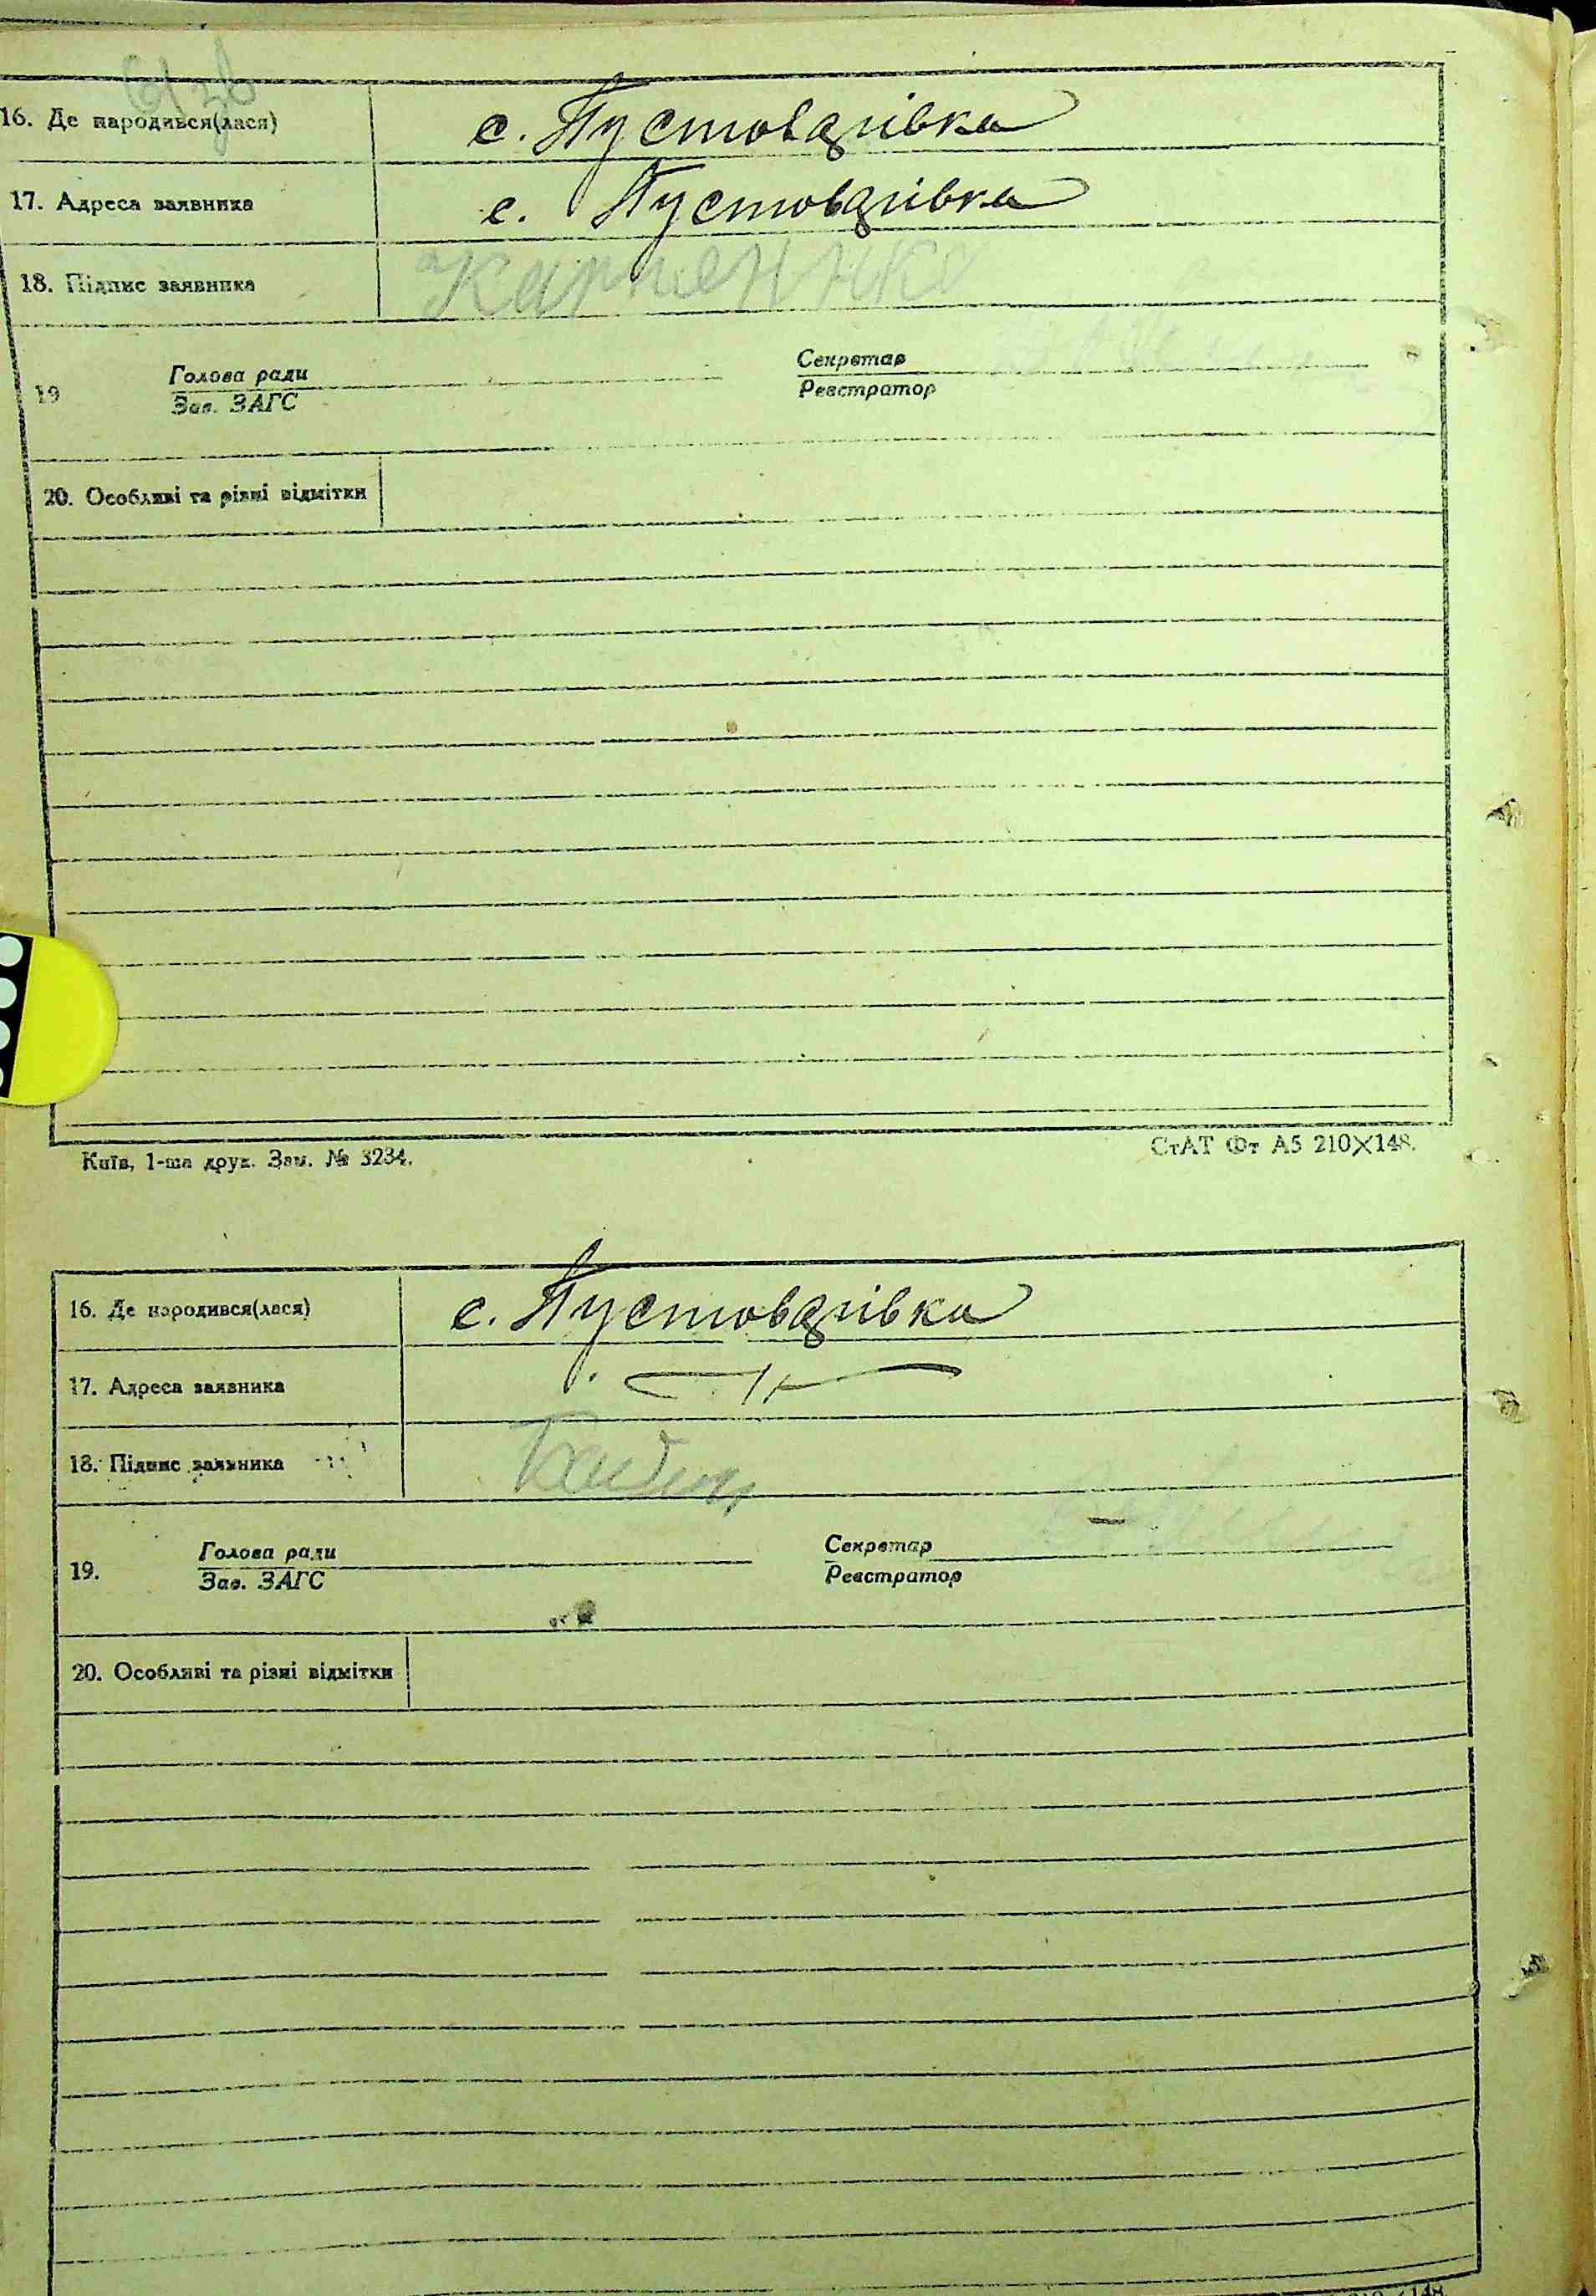 16. Де народився(лася) с. Пустовдрівка
17. Адреса заявника с. Пустовдрівка
18. Підпис заявника Карпенко
Голова ради Секретар
19 Зав. ЗАГС Реєстратор
20. Особливі та різні відмітки
Київ, 1-ша друк. Зам. № 3234. СтАТ Фт А5 210×148.
16. Де народився(лася) с. Пустовдрівка
17. Адреса заявника -//-
18. Підпис заявника
Голова ради Секретар
19. Зав. ЗАГС Реєстратор
20. Особливі та різні відмітки